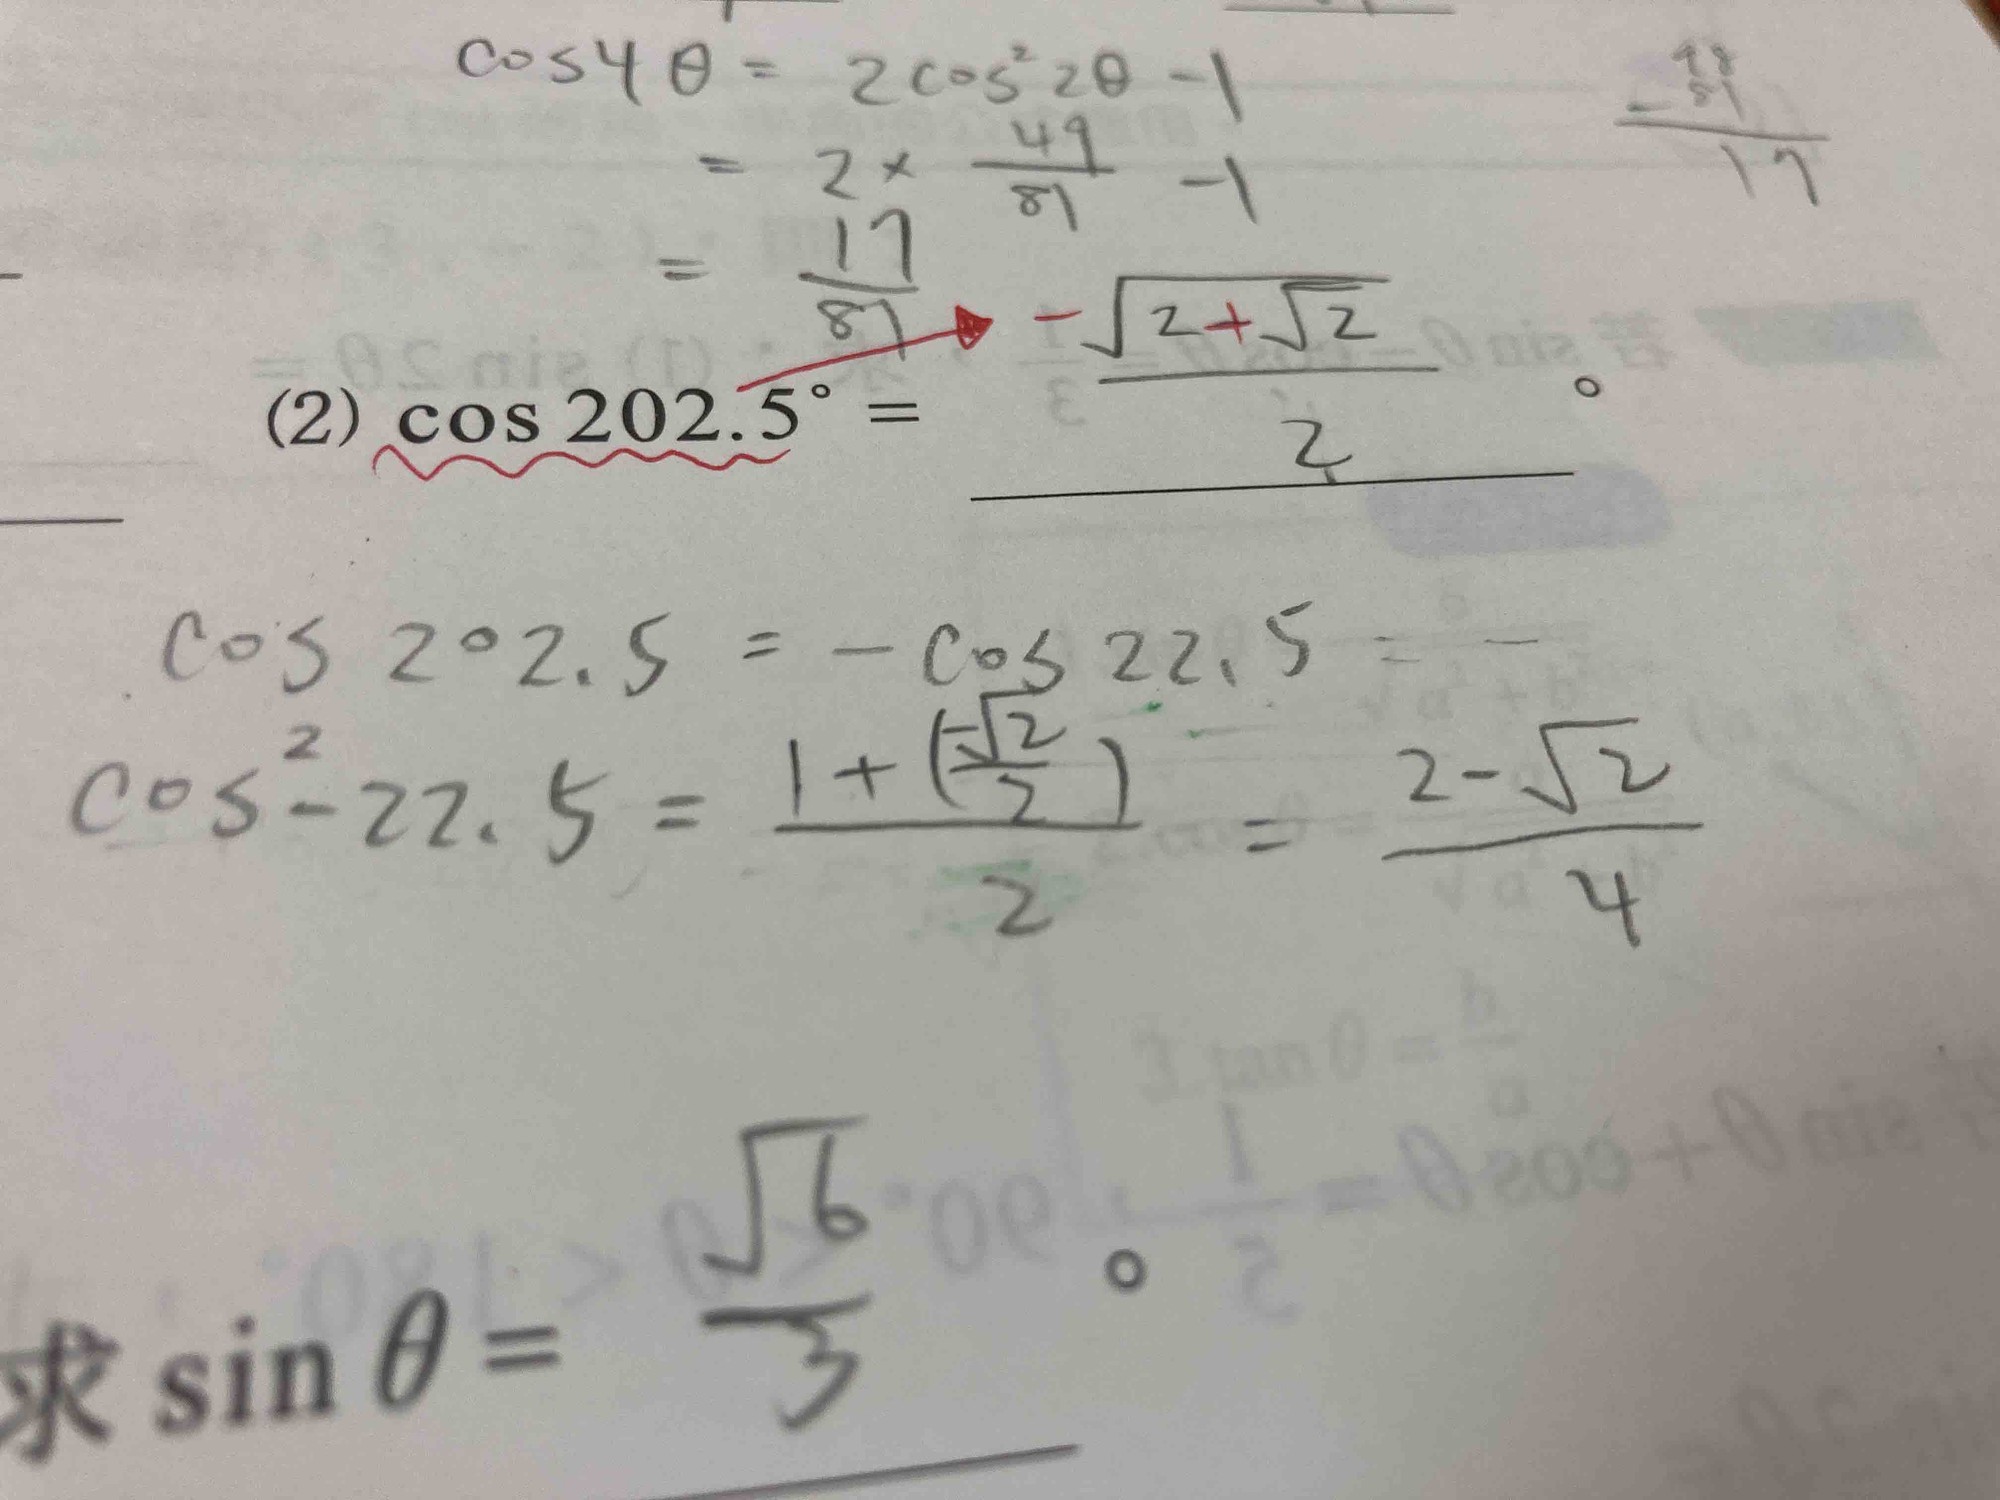 cos4θ = 2cos²2θ -1
= 2 × 49/81 -1
98
- 81
17
= 17/81
(2) cos 202.5° = -√(2+√2)/2 。
cos 202.5 = -cos 22.5 = -
cos² -22.5 = (1 + (-√2/2))/2 = (2-√2)/4
求 sin θ = √6/3 。